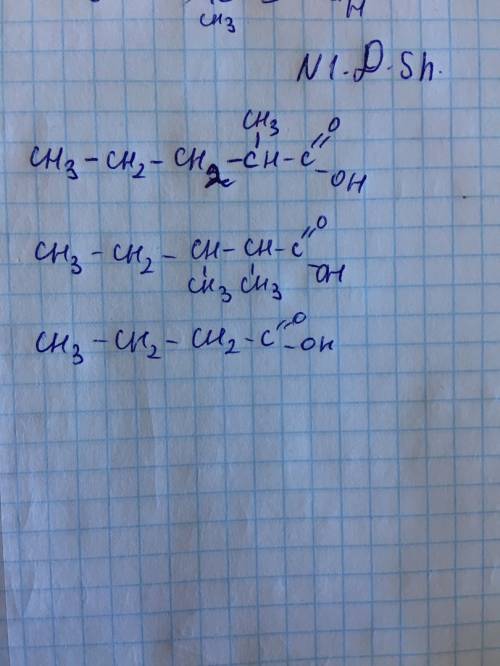 CH3 H
N1. D. Sh.
CH3
CH3 - CH2 - CH2 - CH - C = O
- OH
CH3 - CH2 - CH - CH - C = O
CH3 CH3 OH
CH3 - CH2 - CH2 - C = O - OH